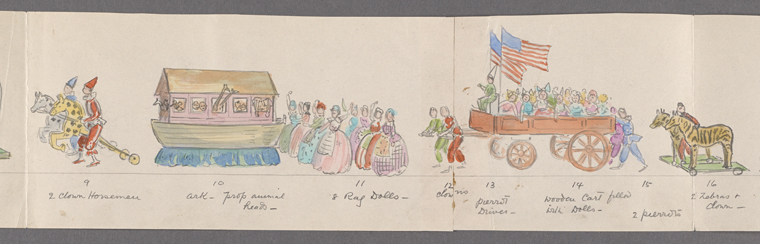 9
2 Clown Horsemen
10
Ark - Prop. animal
Heads -
11
8 Rag Dolls -
12
Clowns
13
Pierrot
Driver -
14
Wooden Cart filled
with Dolls -
15
2 pierrots
16
2 Zebras +
Clown -